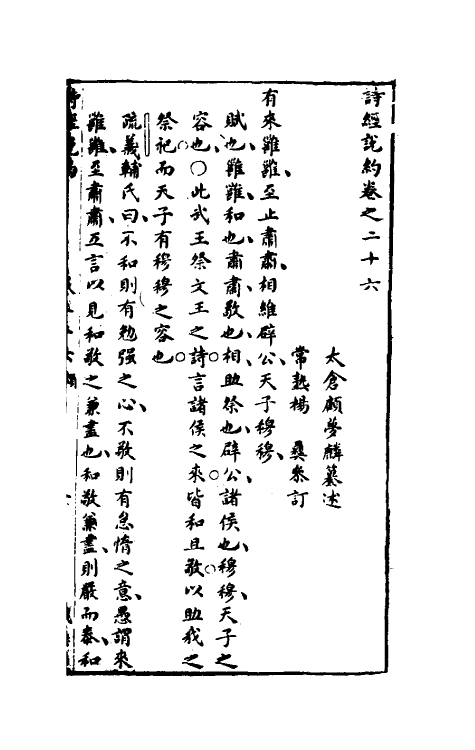 詩經説約卷之二十六
太倉顧夢麟纂述
常熟楊 彝叅訂
有來雝雝至止肅肅相維辟公天子穆穆
賦也雝雝和也肅肅敬也相助祭也辟公諸侯也穆穆天子之
容也○此武王祭文王之詩言諸侯之來皆和且敬以助我之
祭祀而天子有穆穆之容也
疏義輔氏曰不和則有勉强之心不敬則有怠惰之意愚謂來
雝雝至肅肅互言以見和敬之兼盡也和敬兼盡則嚴而泰和